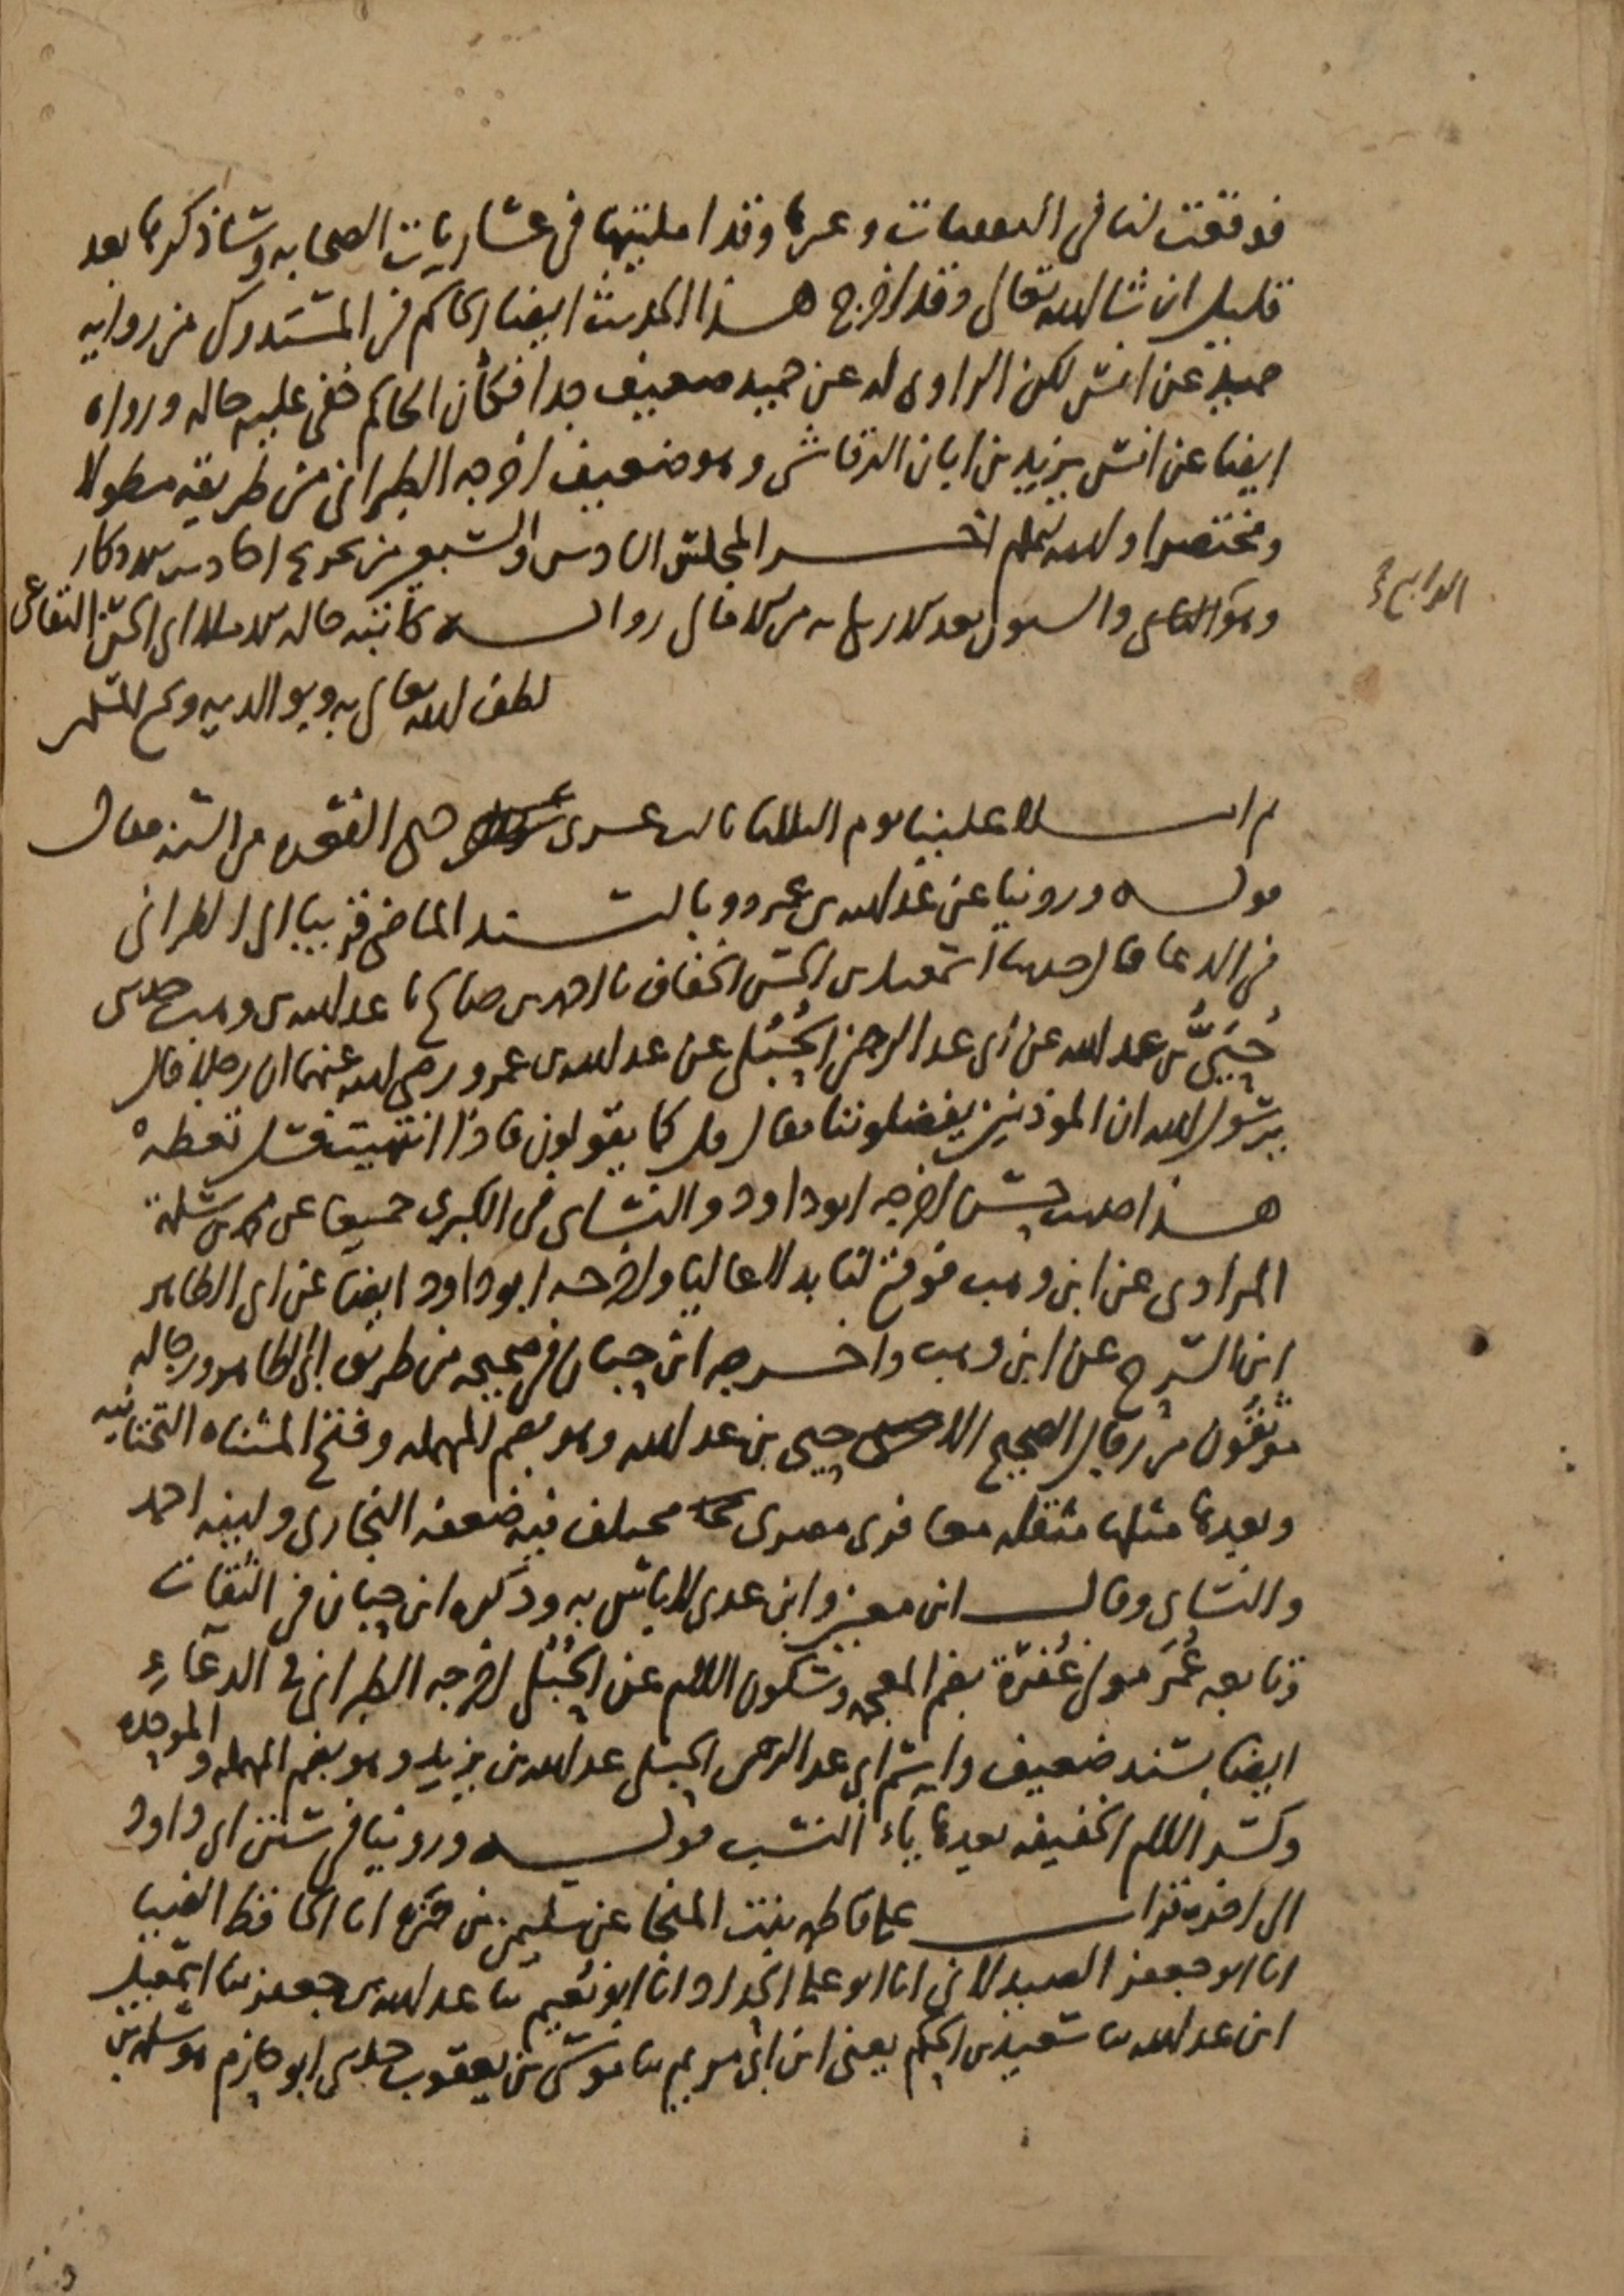 فوقعت لنا في الغيلانيات وغيرها وقد امليتها في عشاريات الصحابه وساذكرها بعد
قليل ان شا الله تعالى وقد اخرج هذا الحديث ايضا الحاكم في المستدرك من روايه
حميد عن انس لكن الراوى له عن حميد ضعيف جدا فكأن الحاكم خفى عليه حاله ورواه
ايضا عن انس يزيد بن ابان الرقاشى وهو ضعيف اخرجه الطبرانى من طريقه مطولا
ومختصرا والله اعلم اخر المجلس السادس والسبعين من تخريج احاديث الاذكار
وهو والسبعون بعد قال رواه كاتبه ابى الحسن البقاعى
الرابع
لطف الله تعالى به وبوالديه وجميع المسلمين
ثم املا علينا يوم الثلاثا ثالث عشرى ذى القعده من السنه فقال
قوله وروينا عن عبد الله بن عمرو وبالسند الماضى قريبا الى الطبرانى
فى الدعا قال حدثنا اسمعيل بن الحسن الخفاف نا احمد بن صالح نا عبد الله بن وهب حدثنى
حُيَىُّ بن عبد الله عن ابى عبد الرحمن الحُبُلى عن عبد الله بن عمرو رضى الله عنهما ان رجلا قال
يرسول الله ان الموذنين يفضلوننا فقال قل كما يقولون فاذا انتهيت فسل تعطه
هذا حديث حسن اخرجه ابو داود والنساى فى الكبرى جميعا عن محمد بن سلمة
المرادى عن ابن وهب فوقع لنا بدلا عاليا واخرجه ابو داود ايضا عن ابى الطاهر
ابن السرح عن ابن وهب واخرجه ابن حبان فى صحيحه من طريق ابى الطاهر ورجاله
موثقون من رجال الصحيح الا حيى بن عبد الله وهو بضم المهمله وفتح المثناه التحتانيه
وبعدها مثلها مثقله معافرى مصرى مختلف فيه ضعفه البخارى ولينه احمد
والنساى وقال ابن معين وابن عدى لا باس به وذكره ابن حبان فى الثقات
وتابعه عُمَر مولى غُفْرَة بضم المعجمه وسكون الفا عن الحُبُلى اخرجه الطبرانى فى الدعاء
ايضا بسند ضعيف واسم ابى عبد الرحمن الحبلى عبد الله بن يزيد وهو بضم المهمله والموحده
وكسر اللام الخفيفه بعدها ياء النسب قوله وروينا فى سنن ابى داود
الى اخره قرات على فاطمه بنت المنجا عن سليمن بن حمزه انا الحافظ الضيا
انا ابو جعفر الصيدلانى انا ابو على الحداد انا ابو نُعَيم نا عبد الله بن جعفر نا اسمعيل
ابن عبد الله نا سعيد بن الحكم يعنى ابن ابى مريم نا موسى بن يعقوب حدثنى ابو حازم هو سلمه بن